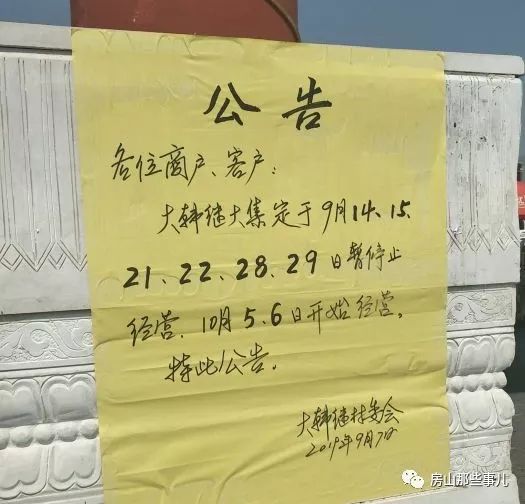 公告
各位商户、客户:
大韩继大集定于9月14、15、
21、22、28、29日暂停止
经营、10月5、6日开始经营。
特此公告。
大韩继村委会
2019年9月7日
房山那些事儿